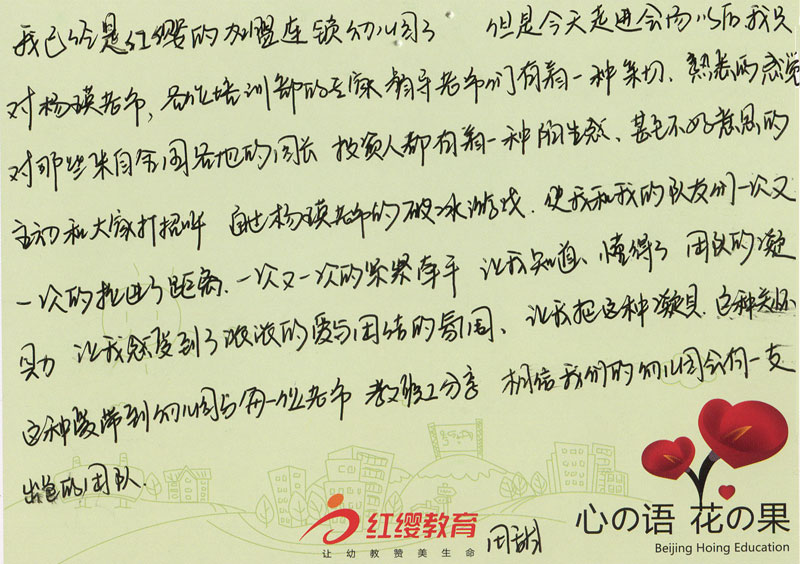 我已经是红缨的加盟连锁幼儿园了 但是今天走进会场以后我只
对杨瑛老师,各位培训部的专家 领导老师们有着一种亲切、熟悉的感觉
对那些来自全国各地的园长 投资人都有着一种陌生感、甚至不好意思的
主动和大家打招呼 自从杨瑛老师的破冰游戏、使我和我的队友们一次又
一次的拉进了距离、一次又一次的紧紧牵手 让我知道、懂得了 团队的凝
聚力 让我感受到了浓浓的爱与团结的氛围、让我把这种凝具、这种关怀
这种爱带到幼儿园与每一位老师 教职工分享 相信我们的幼儿园会有一支
出色的团队.
红缨教育
让幼教赞美生命
心の语 花の果
Beijing Hoing Education